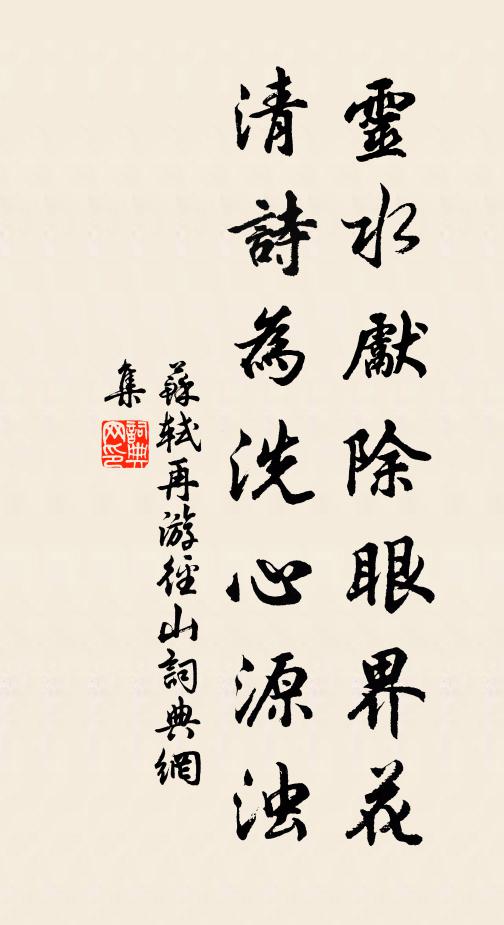 靈水獻除眼界花
清詩為洗心源浊
蘇轼再游徑山詞典網
集
詞典网印